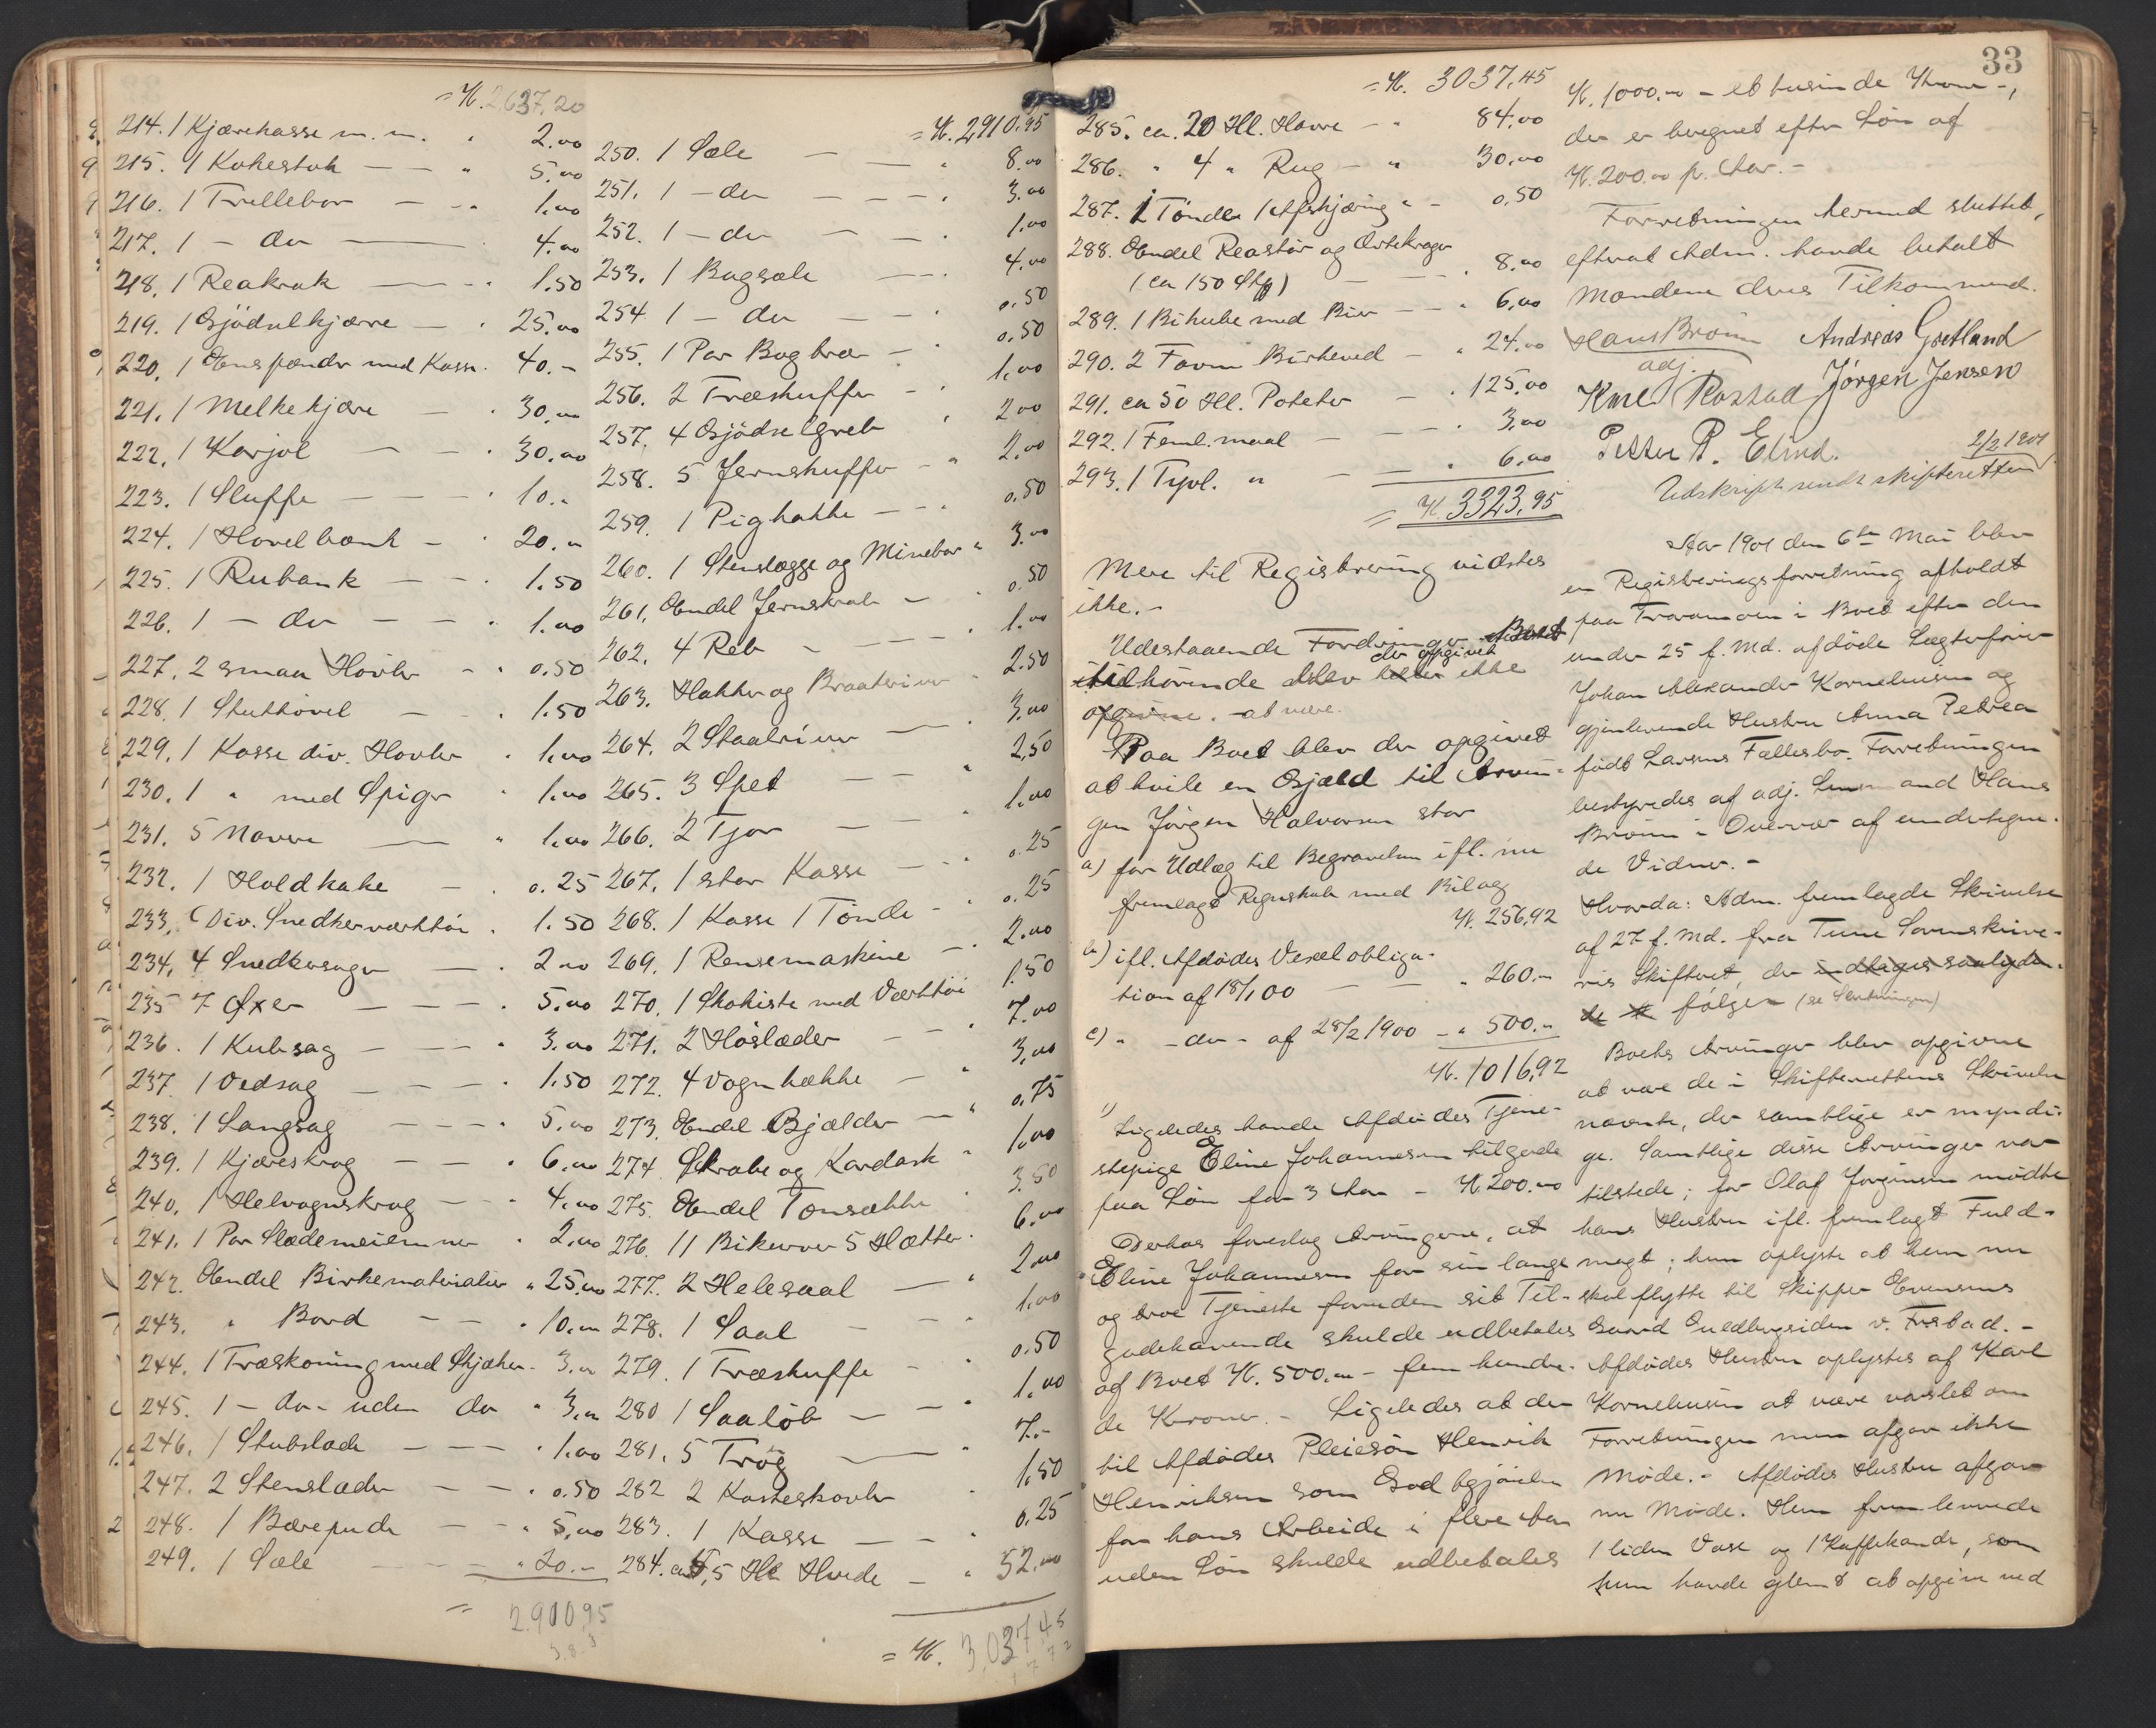 = K. 2637,20
214. 1 Kjærekasse m. m. " 2.00
215. 1 Kokestok — — " 5.00
216. 1 Trillebør — — " 1.00
217. 1 — do — 4.00
218. 1 Reakrak — — " 1.50
219. 1 Gjödselkjærre — " 25.00
220. 1 Enspænder med Kasse. 40.-
221. 1 Melkekjærre — " 30.00
222. 1 Karjol — — " 30.00
223. 1 Sluffe — — " 10.-
224. 1 Høvelbænk — " 20.-
225. 1 Rubank — — " 1.50
226. 1 — do — — " 1.00
227. 2 smaa Høvler — " 0.50
228. 1 Sluthövel — " 1.50
229. 1 Kasse div. Høvler " 1.00
230. 1 " med Spiger " 1.00
231. 5 Navere — " 1.00
232. 1 Holdhake — " 0.25
233. Div. Snedkerværktöi " 1.50
234. 4 Snedkersager — " 2.00
235 7 Øxer — — — " 5.00
236. 1 Kubsag — — — " 3.00
237. 1 Vedsag — — — " 1.50
238. 1 Langsag — — — " 5.00
239. 1 Kjæreskrog — — " 6.00
240. 1 Helvognskrog — — " 4.00
241. 1 Par Slædemeiemner " 2.00
242. Endel Birkematerialier " 25.00
243. " Bord — — " 10.00
244. 1 Træskoning med Skjæker " 3.00
245. 1 — do — uden do " 3.00
246. 1 Stubslæde — — — " 1.00
247. 2 Stenslæder — — " 0.50
248. 1 Bærepude — — " 5.00
249. 1 Sæle — — — " 20.-
= 2.910,95
= K. 2,910.95
250. 1 Sæle — — " 8.00
251. 1 — do — — — " 3.00
252. 1 — do — — " 1.00
253. 1 Bagsæle — — " 4.00
254 1 — do — — " 0.50
255. 1 Par Bogtræ — " 0.50
256. 2 Træskuffer — " 1.00
257. 4 Gjödselgreb " 2.00
258. 5 Jernskuffer — " 2.00
259. 1 Pighakke — — " 0.50
260. 1 Stenslægge og Minebor " 3.00
261. Endel Jernskrab — " 0.50
262. 4 Reb — — — " 1.00
263. Hakker og Braateriver " 2.50
264. 2 Staalriver — " 3.00
265. 3 Spet — — " 2.50
266. 2 Tjor — — " 1.00
267. 1 stor Kasse — — " 0.25
268. 1 Kasse 1 Tönde — " 0.25
269. 1 Rensemaskine — " 2.00
270. 1 Skokiste med Værktöi 1.50
271. 2 Höslæder — " 7.00
272. 4 Vognhække — " 3.00
273. Endel Bjælder — " 0.75
274. Skrabe og Kardask " 1.00
275. Endel Tønsække " 3.50
276. 11 Bikuver 5 Hætter " 6.00
277. 2 Helesaal — " 2.00
278. 1 Saal — — " 1.00
279. 1 Træskuffe — " 0.50
280 1 Saalöb — — " 1.00
281. 5 Trög — " 7.-
282 2 Kasteskovler " 1.50
283. 1 Kasse — — " 0.25
284. ca 5,5 Hl. Hvede — " 52.00
= K. 3,037,45
33
= K. 3037,45
285. ca. 20 Hl. Havre — " 84.00
286. " 4 " Rug — " 30.00
287. 1 Tönde / Afskjæring " — 0.50
288. Endel Reastör og Ertekrager
(ca 150 Stk) — — " 8.00
289. 1 Bikube med Bier — — " 6.00
290. 2 Favn Birkeved — " 24.00
291. ca 50 Hl. Poteter — " 125.00
292. 1 Feml. maal — — — " 3.00
293. 1 Tyvl. " — — " 6.00
= K. 3323,95
Mere til Registrering vidstes
ikke.-
Udestaaende Fordringer Boet
tilhørende blev heller der opgivet ikke
opgivne. at være.
Paa Boet blev der opgivet
at hvile en Gjæld til Arvin-
gen Jörgen Halvorsen stor
a) for Udlæg til Begravelsen ifl. nu
fremlagt Regnskab med Bilag
K. 256,92
b) ifl. Afdödes Vexelobliga-
tion af 18/1 00 — — " 260.-
c) " - do - af 28/2 1900 — " 500.-
K. 1016,92
Ligeledes havde Afdödes Tjene-
stepige Eline Johannesen tilgode
paa Lön for 3 Aar — K. 200.00
Derhos foreslog Arvingerne, at
Eline Johannesen for sin lange
og tro Tjeneste foruden sit Til-
godehavende skulde udbetales
af Boet K. 500.00 — fem hundre-
de Kroner. — Ligeledes at der
til Afdödes Pleiesön Henrik
Henriksen som Godtgjörelse
for hans Arbeide i flere Aar
uden Lön skulde udbetales
K. 1000.00 — et tusinde Kroner —,
der er beregnet efter Lön af
K. 200.00 pr. Aar. —
Forretningen hermed sluttet,
efterat Adm. havde betalt
Mændene deres Tilkommende.
Hans Brönn Andreas Grøtland
adj.
Karl Rostad Jörgen Jensen
Petter P. Elind.
2/2 1901
Udskrift sendt skifteretten
Aar 1901 den 6te Mai blev
en Registreringsforretning afholdt
paa Traramoen i Boet efter den
under 25 f. Md. afdöde Lægterfører
Johan Alexander Kornelius­en og
gjenlevende Hustru Anna Petrea
födt Larsens Fællesbo. Forretningen
bestyredes af adj. Lensmand Hans
Brönn i Overvær af undertegne-
de Vidner. —
Hvorda: Adm. fremlagde Skrivelse
af 27 f. Md. fra Tune Sorenskrive-
ris Skifteret, der indtages saalyden-
de følger (se Slutningen)
Boets Arvinger blev opgivne
at være de i Skifterettens Skrivelse
nævnte, der samtlige er myndi-
ge. Samtlige disse Arvinger var
tilstede; for Olaf Jorginsen mödte
hans Hustru ifl. fremlagt Fuld-
magt; hun oplyste at hun nu
skal flytte til Skipper Evensens
Gaard v. -
Afdödes Hustru oplystes af Karl
Korneliusen at være varslet om
Forretningen men afgav ikke
Möde. — Afdödes Hustru afgav
nu Möde. Hun fremleverede
1 liden Vase og 1 Kaffekande, som
hun havde glemt at opgive ved